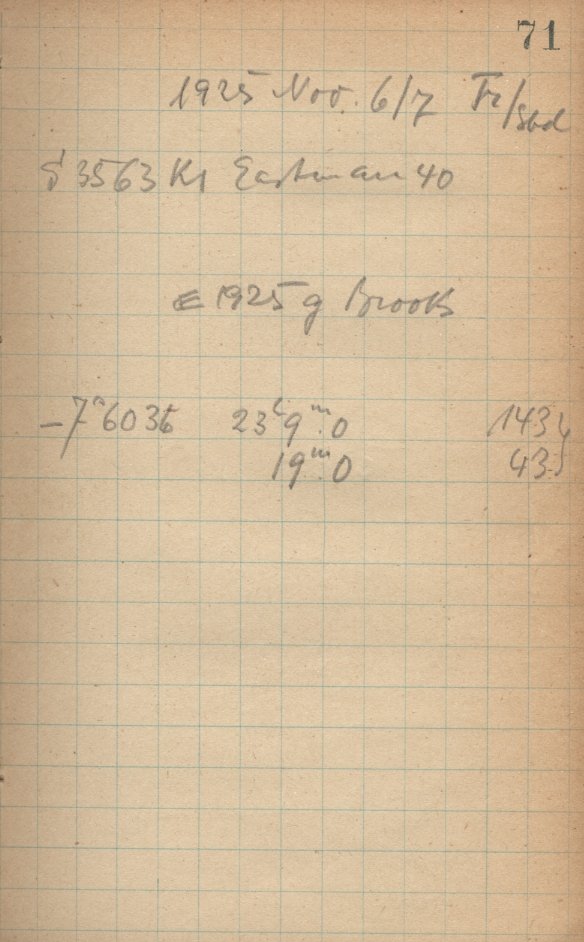 71
1925 Nov. 6/7 Fr/Sbd
3563 K1 Eastman 40
1925 g Brooks
-7°6036 23h9m.0 143
19m.0 43